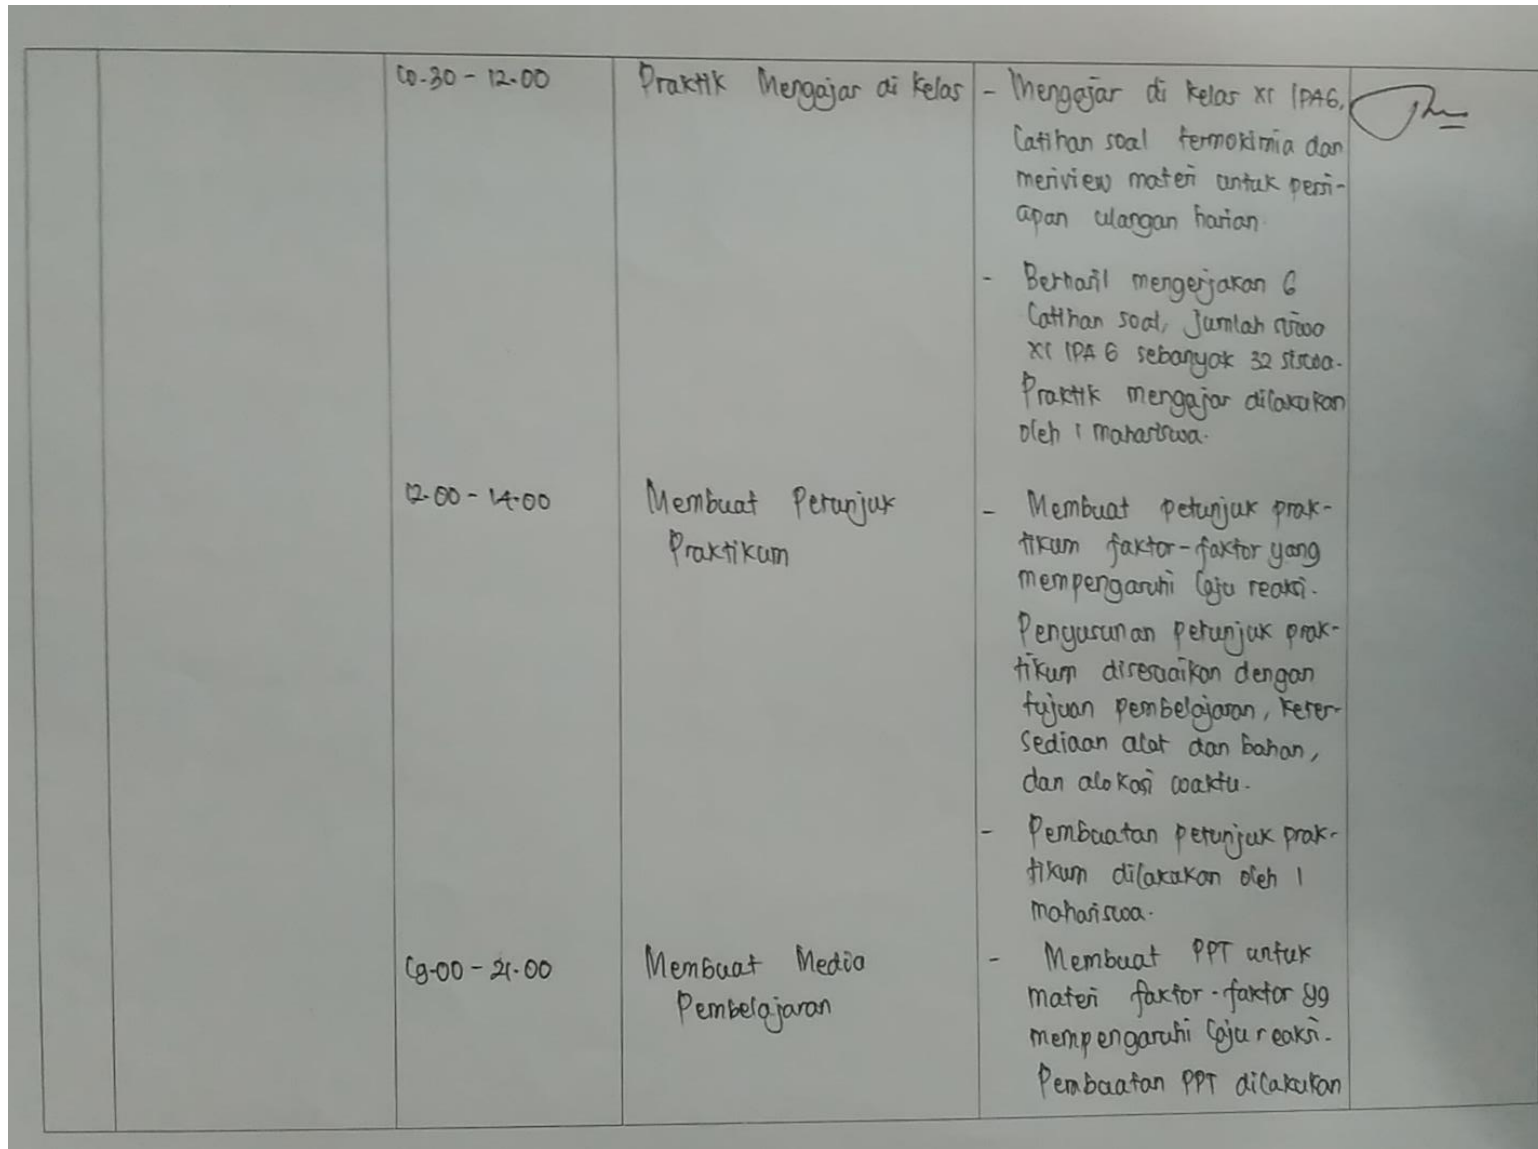 10.30 - 12.00
Praktik Mengajar di kelas
- Mengajar di kelas XI IPA6,
latihan soal termokimia dan
meriview materi untuk persi-
apan ulangan harian.
- Berhasil mengerjakan 6
latihan soal, jumlah siswa
XI IPA 6 sebanyak 32 siswa.
Praktik mengajar dilakukan
oleh 1 mahasiswa.
12.00 - 14.00
Membuat Petunjuk
Praktikum
- Membuat petunjuk prak-
tikum faktor-faktor yang
mempengaruhi laju reaksi.
Penyusunan petunjuk prak-
tikum disesuaikan dengan
tujuan pembelajaran, keter-
sediaan alat dan bahan,
dan alokasi waktu.
- Pembuatan petunjuk prak-
tikum dilakukan oleh 1
mahasiswa.
19.00 - 21.00
Membuat Media
Pembelajaran
- Membuat PPT untuk
materi faktor-faktor yg
mempengaruhi laju reaksi.
Pembuatan PPT dilakukan